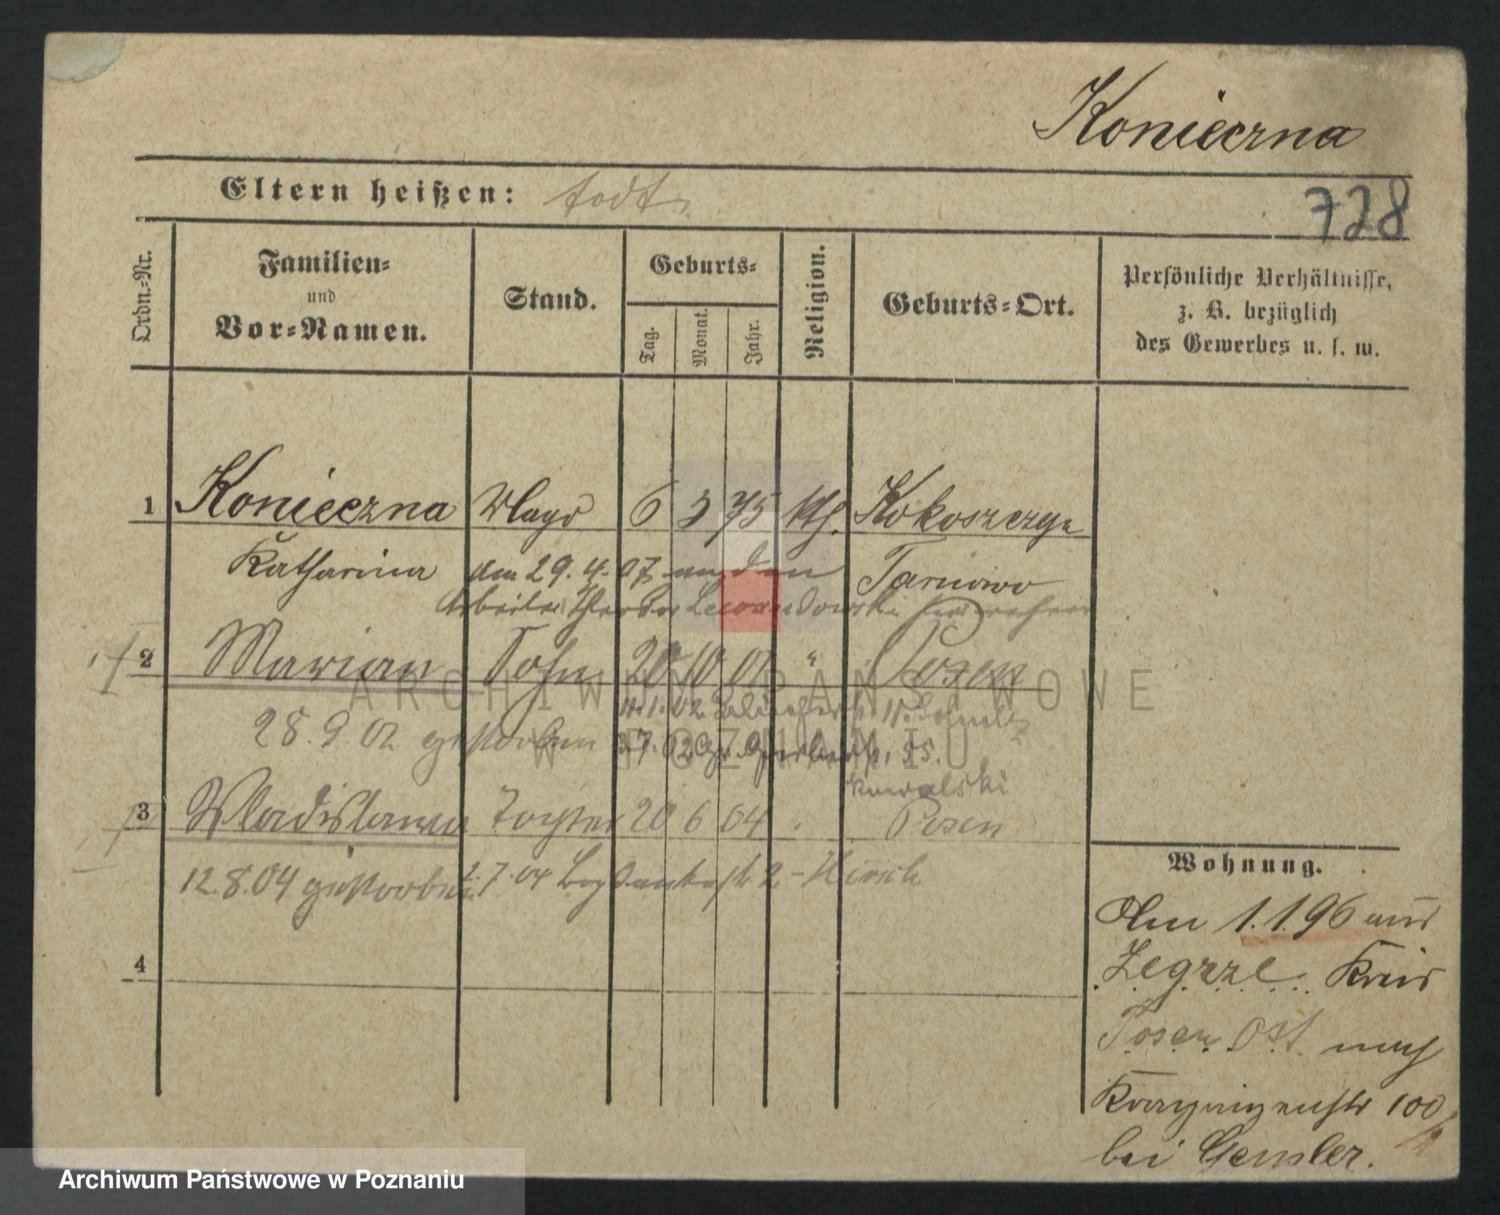 Konieczna
728
Eltern heißen: todt
Ordn.-Nr.
Familien-
und
Vor-Namen.
Stand.
Geburts-
Tag.
Monat.
Jahr.
Religion.
Geburts-Ort.
Persönliche Verhältnisse,
z. B. bezüglich
des Gewerbes u. s. w.
1 Konieczna Magd 6 3 75 kth. Kokoszczyn
Katharina den 29.4.07 an den Tarnowo
Arbeiter Theodor Lewandowski
2 Marian Sohn 20 10 01 " Posen
28.9.02 gestorben
11.1.02
3.7.02 Gr. Gerberstr. 55.
Kowalski
3 Wladislawa Tochter 20 6 04 Posen
12.8.04 gestorben 2.7.04 2 - Hirsch
4
Wohnung.
Am 1.1.96 aus
Zegrze Kreis
Posen Ost nach
100
bei Gensler.
ARCHIWUM PAŃSTWOWE
W POZNANIU
Archiwum Państwowe w Poznaniu